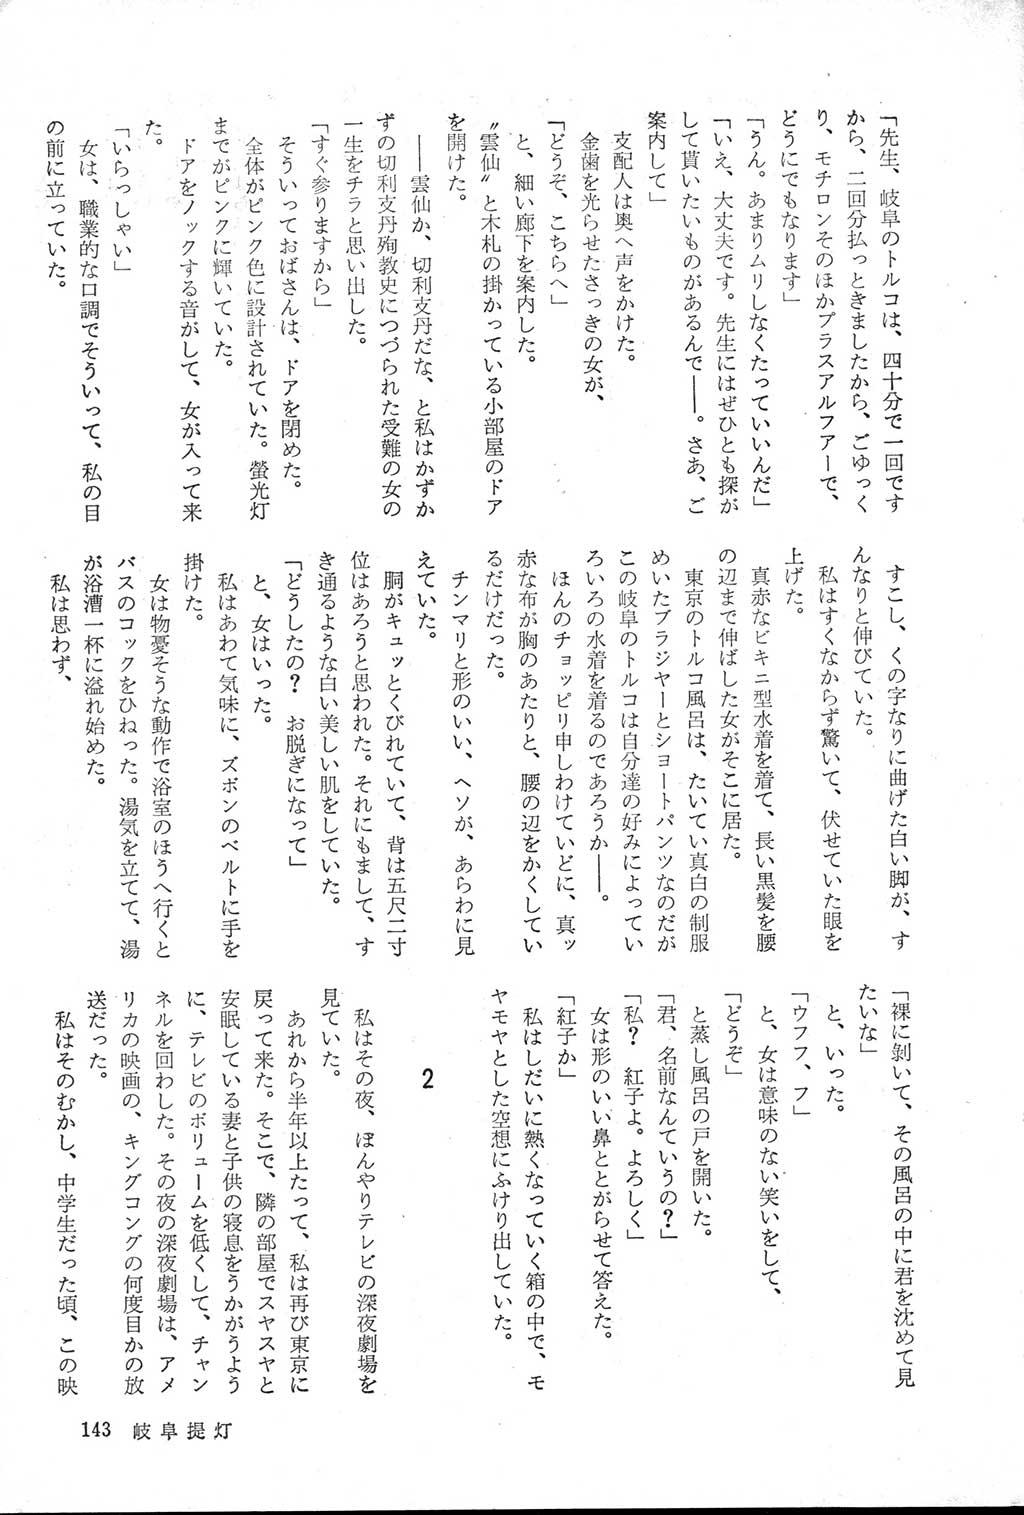 「先生、岐阜のトルコは、四十分で一回です
から、二回分払っときましたから、ごゆっく
り、モチロンそのほかプラスアルファーで、
どうにでもなります」
「うん。あまりムリしなくたっていいんだ」
「いえ、大丈夫です。先生にはぜひとも探が
して貰いたいものがあるんで――。さあ、ご
案内して」
支配人は奥へ声をかけた。
金歯を光らせたさっきの女が、
「どうぞ、こちらへ」
と、細い廊下を案内した。
〝雲仙〟と木札の掛かっている小部屋のドア
を開けた。
――雲仙か、切利支丹だな、と私はかずか
ずの切利支丹殉教史につづられた受難の女の
一生をチラと思い出した。
「すぐ参りますから」
そういっておばさんは、ドアを閉めた。
全体がピンク色に設計されていた。螢光灯
までがピンクに輝いていた。
ドアをノックする音がして、女が入って来
た。
「いらっしゃい」
女は、職業的な口調でそういって、私の目
の前に立っていた。
すこし、くの字なりに曲げた白い脚が、す
んなりと伸びていた。
私はすくなからず驚いて、伏せていた眼を
上げた。
真赤なビキニ型水着を着て、長い黒髪を腰
の辺まで伸ばした女がそこに居た。
東京のトルコ風呂は、たいてい真白の制服
めいたブラジヤーとショートパンツなのだが
この岐阜のトルコは自分達の好みによってい
ろいろの水着を着るのであろうか――。
ほんのチョッピリ申しわけていどに、真ッ
赤な布が胸のあたりと、腰の辺をかくしてい
るだけだった。
チンマリと形のいい、ヘソが、あらわに見
えていた。
胴がキュッとくびれていて、背は五尺二寸
位はあろうと思われた。それにもまして、す
き通るような白い美しい肌をしていた。
「どうしたの？　お脱ぎになって」
と、女はいった。
私はあわて気味に、ズボンのベルトに手を
掛けた。
女は物憂そうな動作で浴室のほうへ行くと
バスのコックをひねった。湯気を立てて、湯
が浴漕一杯に溢れ始めた。
私は思わず、
「裸に剝いて、その風呂の中に君を沈めて見
たいな」
と、いった。
「ウフフ、フ」
と、女は意味のない笑いをして、
「どうぞ」
と蒸し風呂の戸を開いた。
「君、名前なんていうの？」
「私？　紅子よ。よろしく」
女は形のいい鼻ととがらせて答えた。
「紅子か」
私はしだいに熱くなっていく箱の中で、モ
ヤモヤとした空想にふけり出していた。
2
私はその夜、ぼんやりテレビの深夜劇場を
見ていた。
あれから半年以上たって、私は再び東京に
戻って来た。そこで、隣の部屋でスヤスヤと
安眠している妻と子供の寝息をうかがうよう
に、テレビのボリュームを低くして、チャン
ネルを回わした。その夜の深夜劇場は、アメ
リカの映画の、キングコングの何度目かの放
送だった。
私はそのむかし、中学生だった頃、この映
143　岐阜提灯